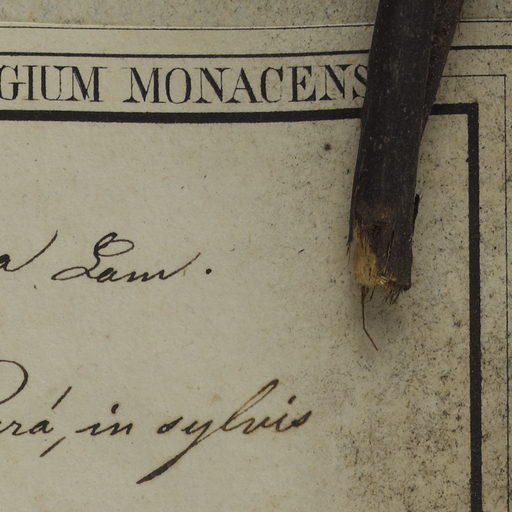 GIUM MONACENS
a Lam.
Pará, in sylvis